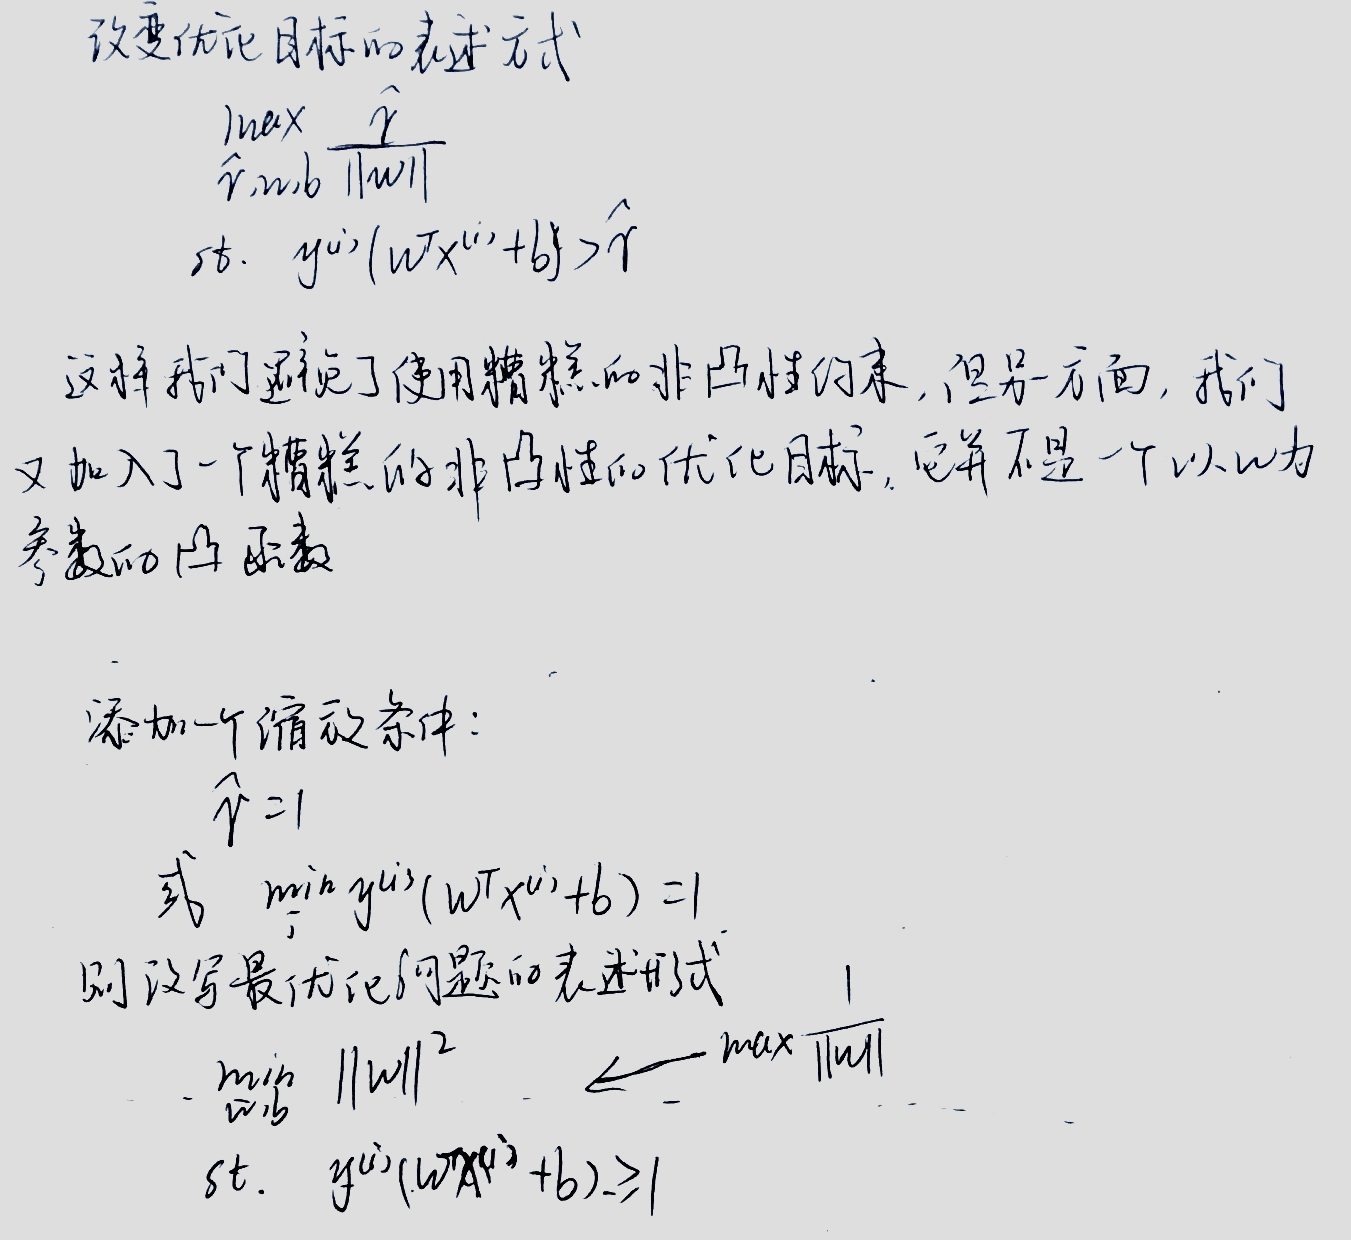 改变优化目标的表述方式
max γ̂/||w||
γ̂,w,b
st. y⁽ⁱ⁾(wᵀx⁽ⁱ⁾+b)>γ̂
这样我们避免了使用糟糕的非凸性约束,但另一方面,我们
又加入了一个糟糕的非凸性的优化目标,它并不是一个以w为
参数的凸函数
添加一个缩放条件:
γ̂=1
或 min y⁽ⁱ⁾(wᵀx⁽ⁱ⁾+b)=1
i
则改写最优化问题的表述形式
min ||w||² ← max 1/||w||
w,b
st. y⁽ⁱ⁾(wᵀx⁽ⁱ⁾+b)≥1